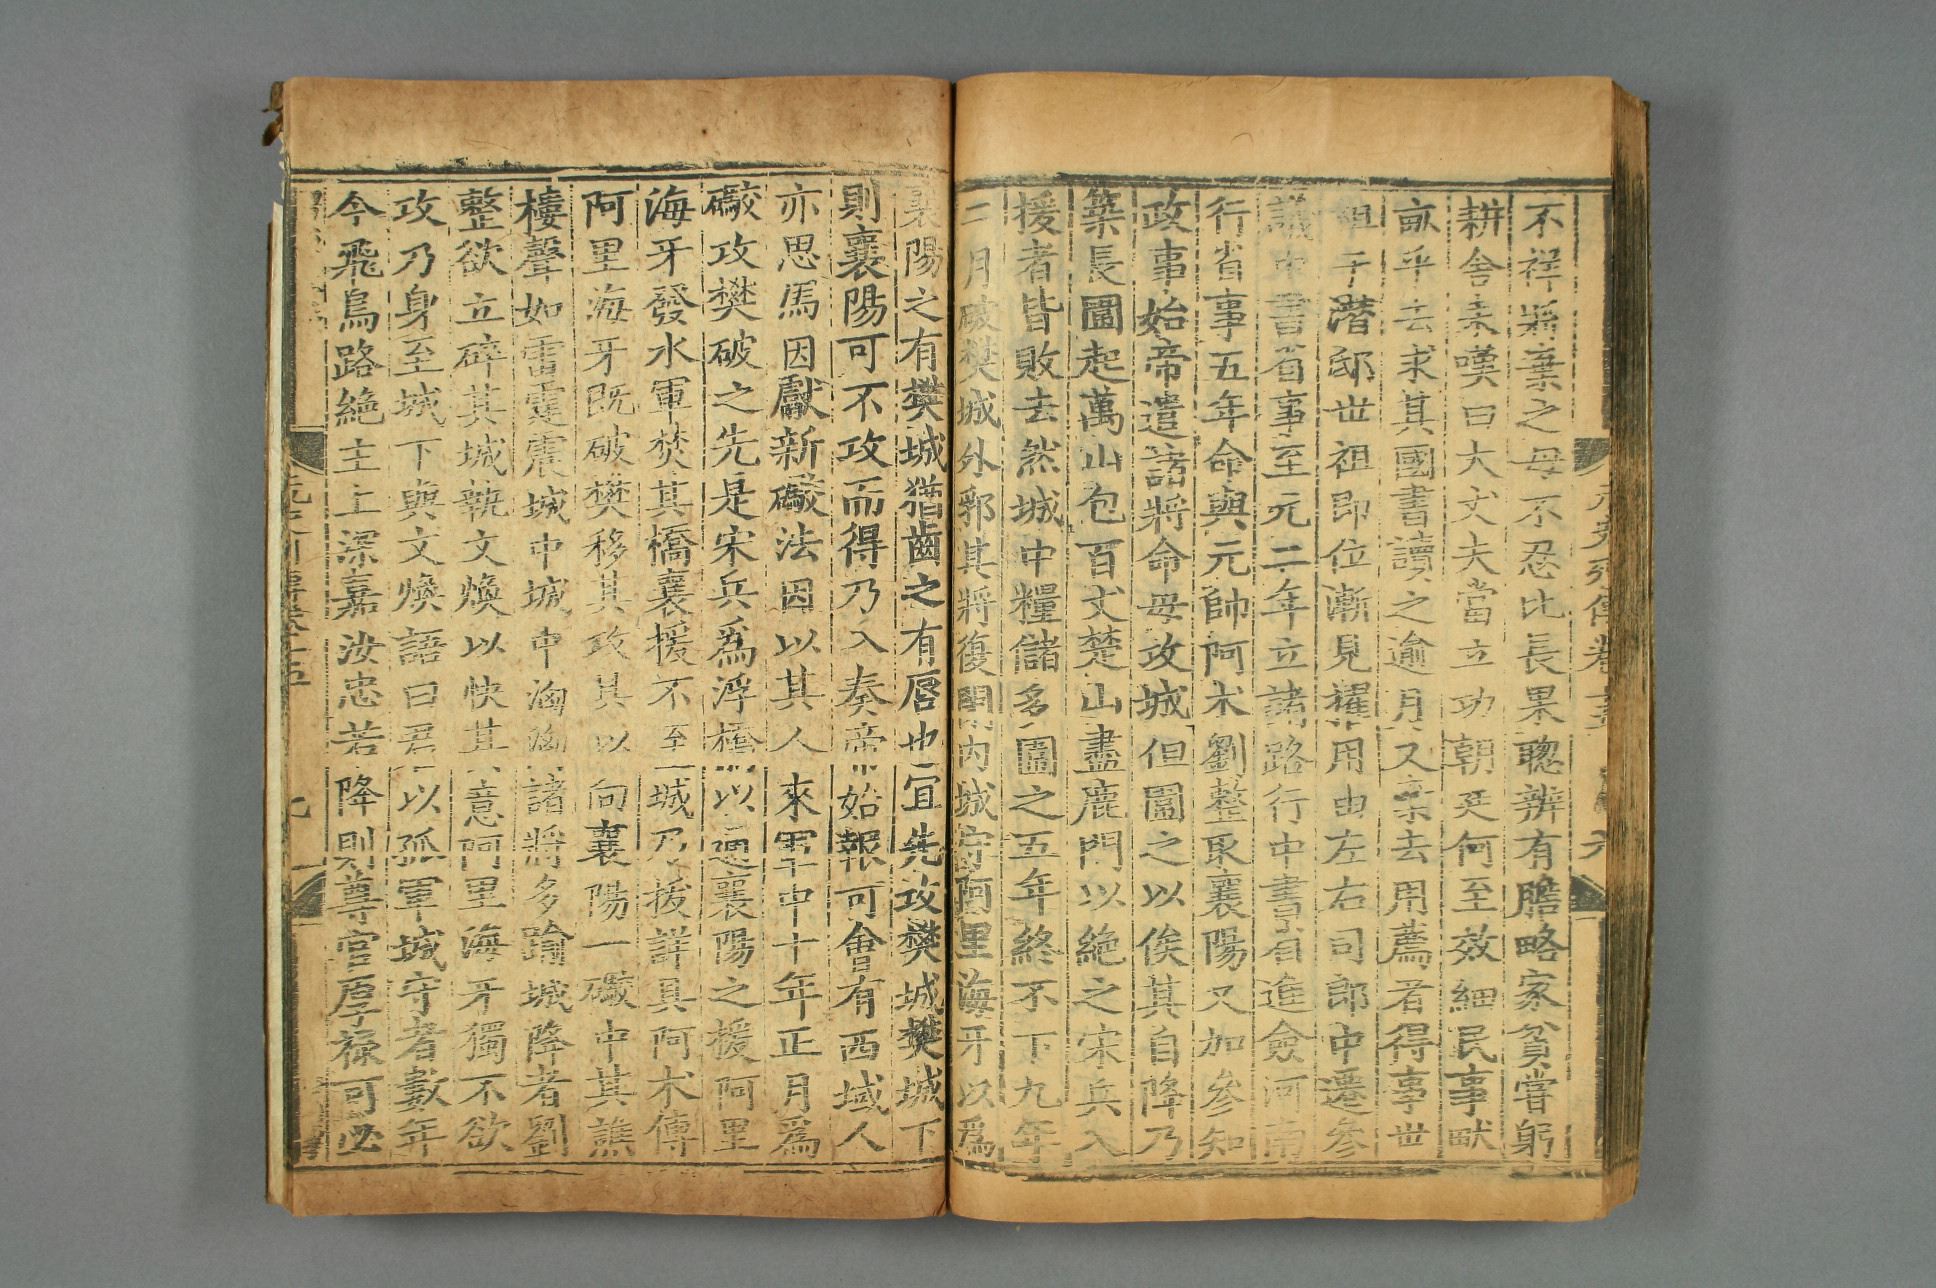 不祥將棄之母不忍比長果聰辨有膽略家貧嘗躬
耕舍耒嘆曰大丈夫當立功朝廷何至效細民事畎
畝乎去求其國書讀之逾月又棄去用薦者得事世
祖于潛邸世祖即位漸見擢用由左右司郎中遷參
議中書省事至元二年立諸路行中書省進僉河南
行省事五年命與元帥阿朮劉整取襄陽又加參知
政事始帝遣諸將命毋攻城但圍之以俟其自降乃
築長圍起萬山包百丈楚山盡鹿門以絶之宋兵入
援者皆敗去然城中糧儲多圍之五年終不下九年
三月破樊城外郛其將復閉內城守阿里海牙以爲
襄陽之有樊城猶齒之有唇也宜先攻樊城樊城下
則襄陽可不攻而得乃入奏帝始報可會有西域人
亦思馬因獻新礮法因以其人來軍中十年正月爲
礮攻樊破之先是宋兵爲浮橋以通襄陽之援阿里
海牙發水軍焚其橋襄援不至城乃拔詳具阿朮傳
阿里海牙既破樊移其攻具以向襄陽一礮中其譙
樓聲如雷霆震城中城中洶洶諸將多踰城降者劉
整欲立碎其城執文煥以快其意阿里海牙獨不欲
攻乃身至城下與文煥語曰君以孤軍城守者數年
今飛鳥路絶主上深嘉汝忠若降則尊官厚祿可必
元史列傳卷十五